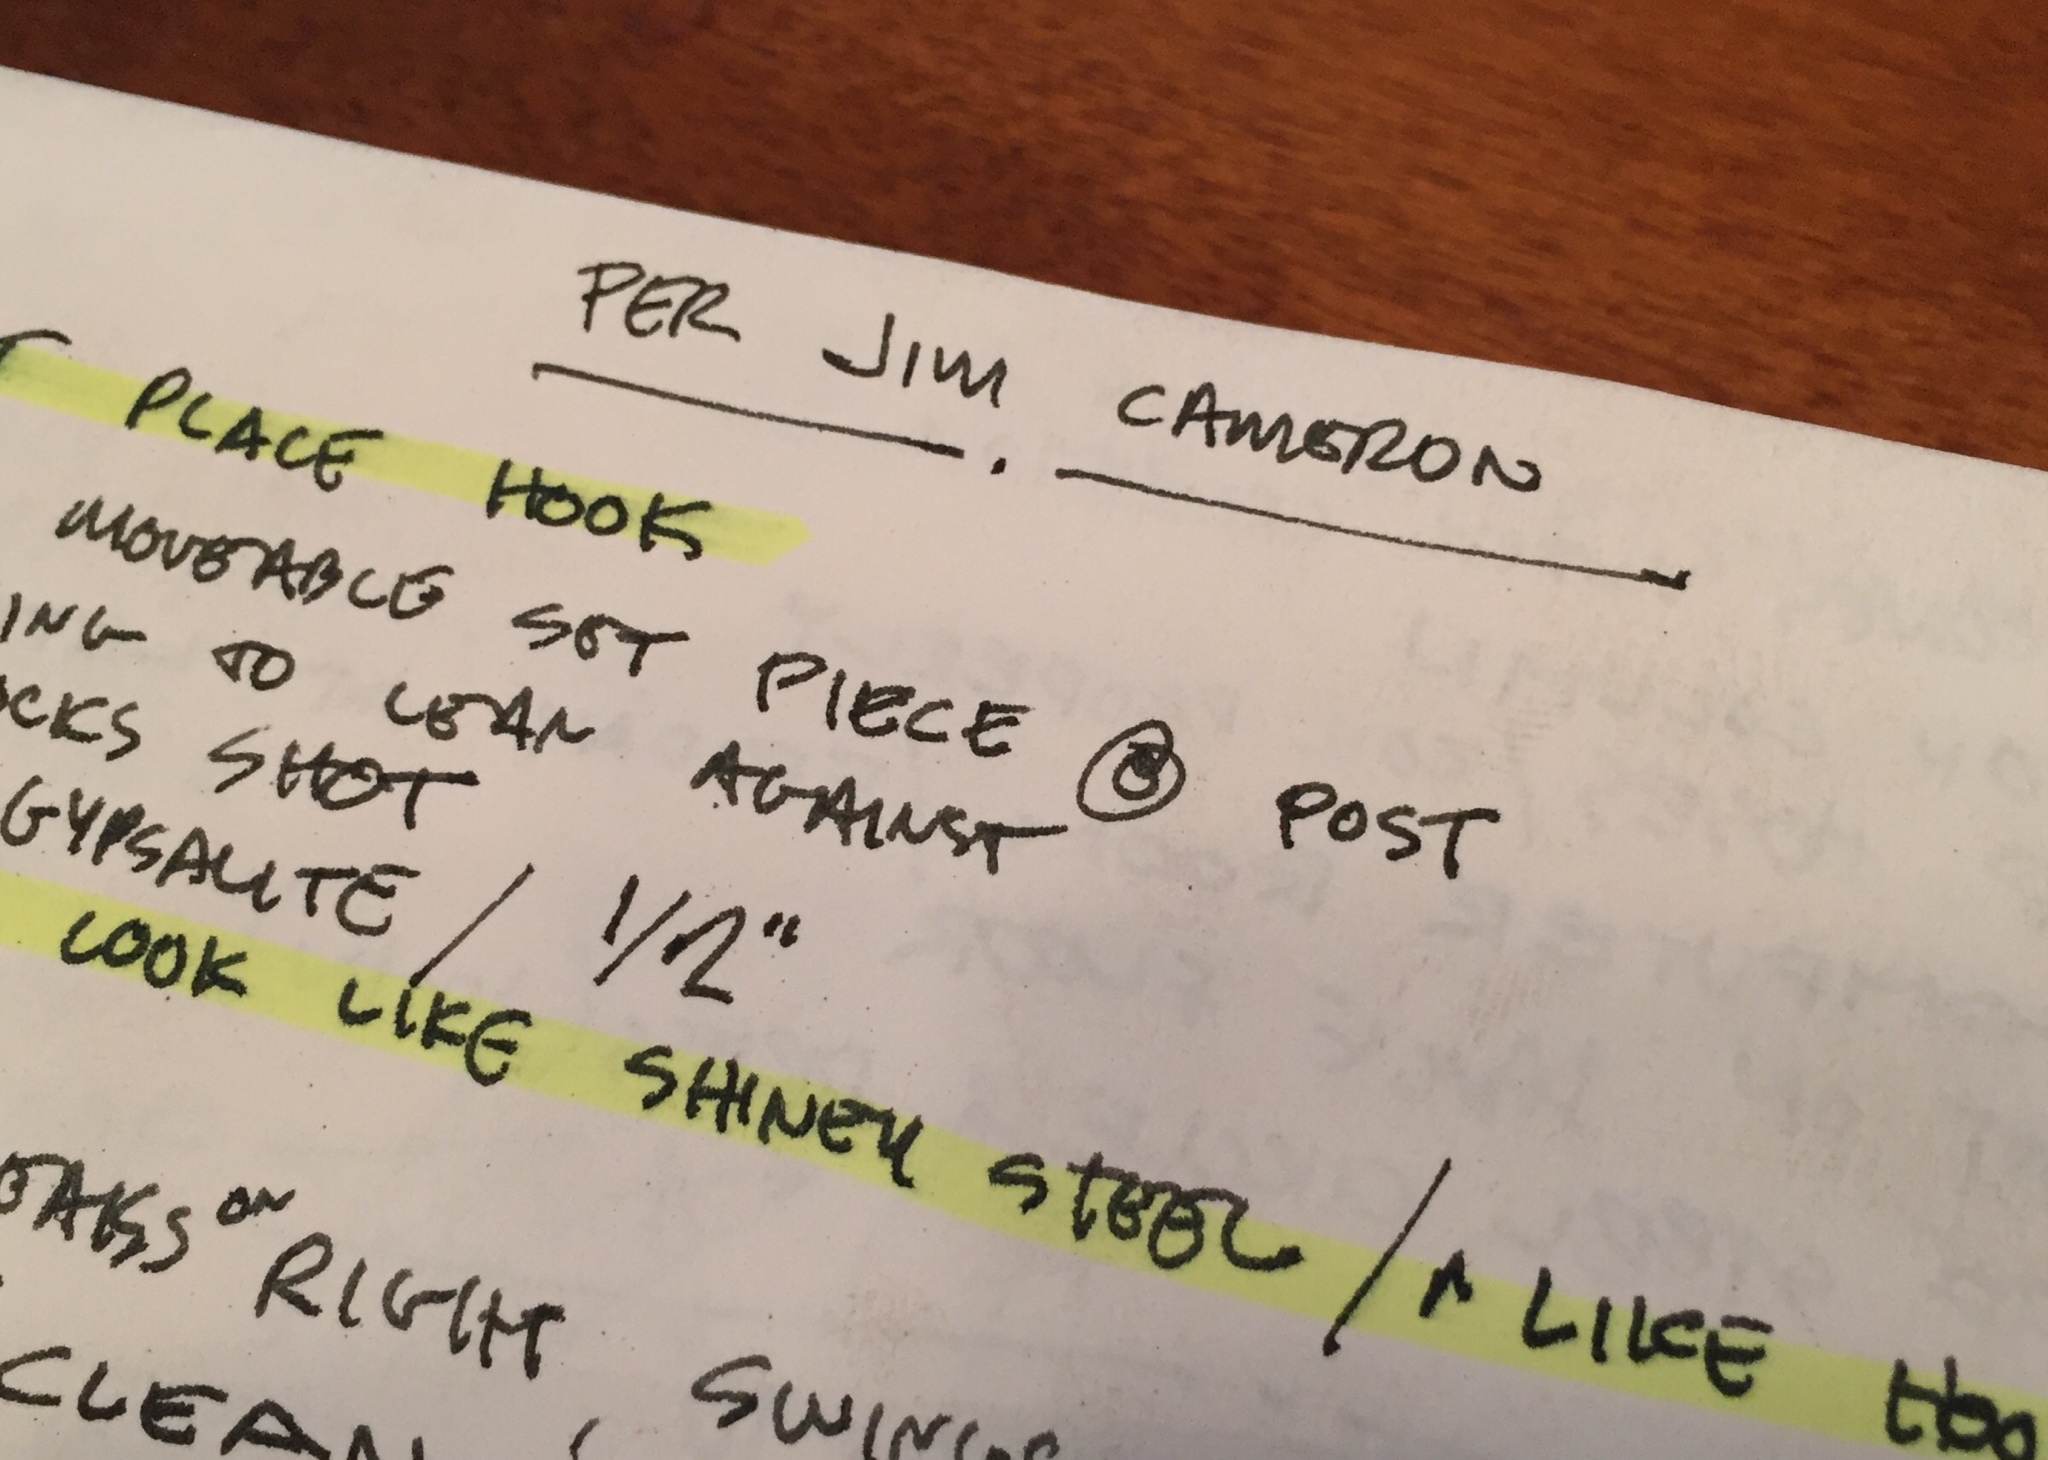 PER JIM CAMERON
PLACE HOOK
MOVEABLE SET PIECE @ POST
ING TO LEAN AGAINST
OCKS SHOT
GYPSALITE / 1/2"
LOOK LIKE SHINEY STEEL / LIKE HOO
EAKS ON RIGHT SWING
CLEAN